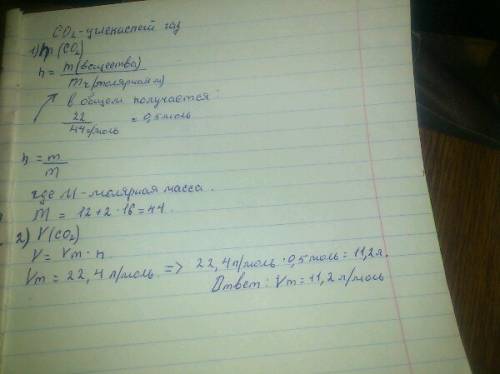 CO₂ - углекислый газ
1) n (CO₂)
n = m (вещества) / Mr (молярная м)
в общем получается:
22 / 44 г/моль = 0,5 моль
n = m / M
где M - молярная масса.
M = 12 + 2 · 16 = 44.
2) V (CO₂)
V = Vm · n
Vm = 22,4 л/моль => 22,4 л/моль · 0,5 моль = 11,2 л.
Ответ: Vm = 11,2 л/моль